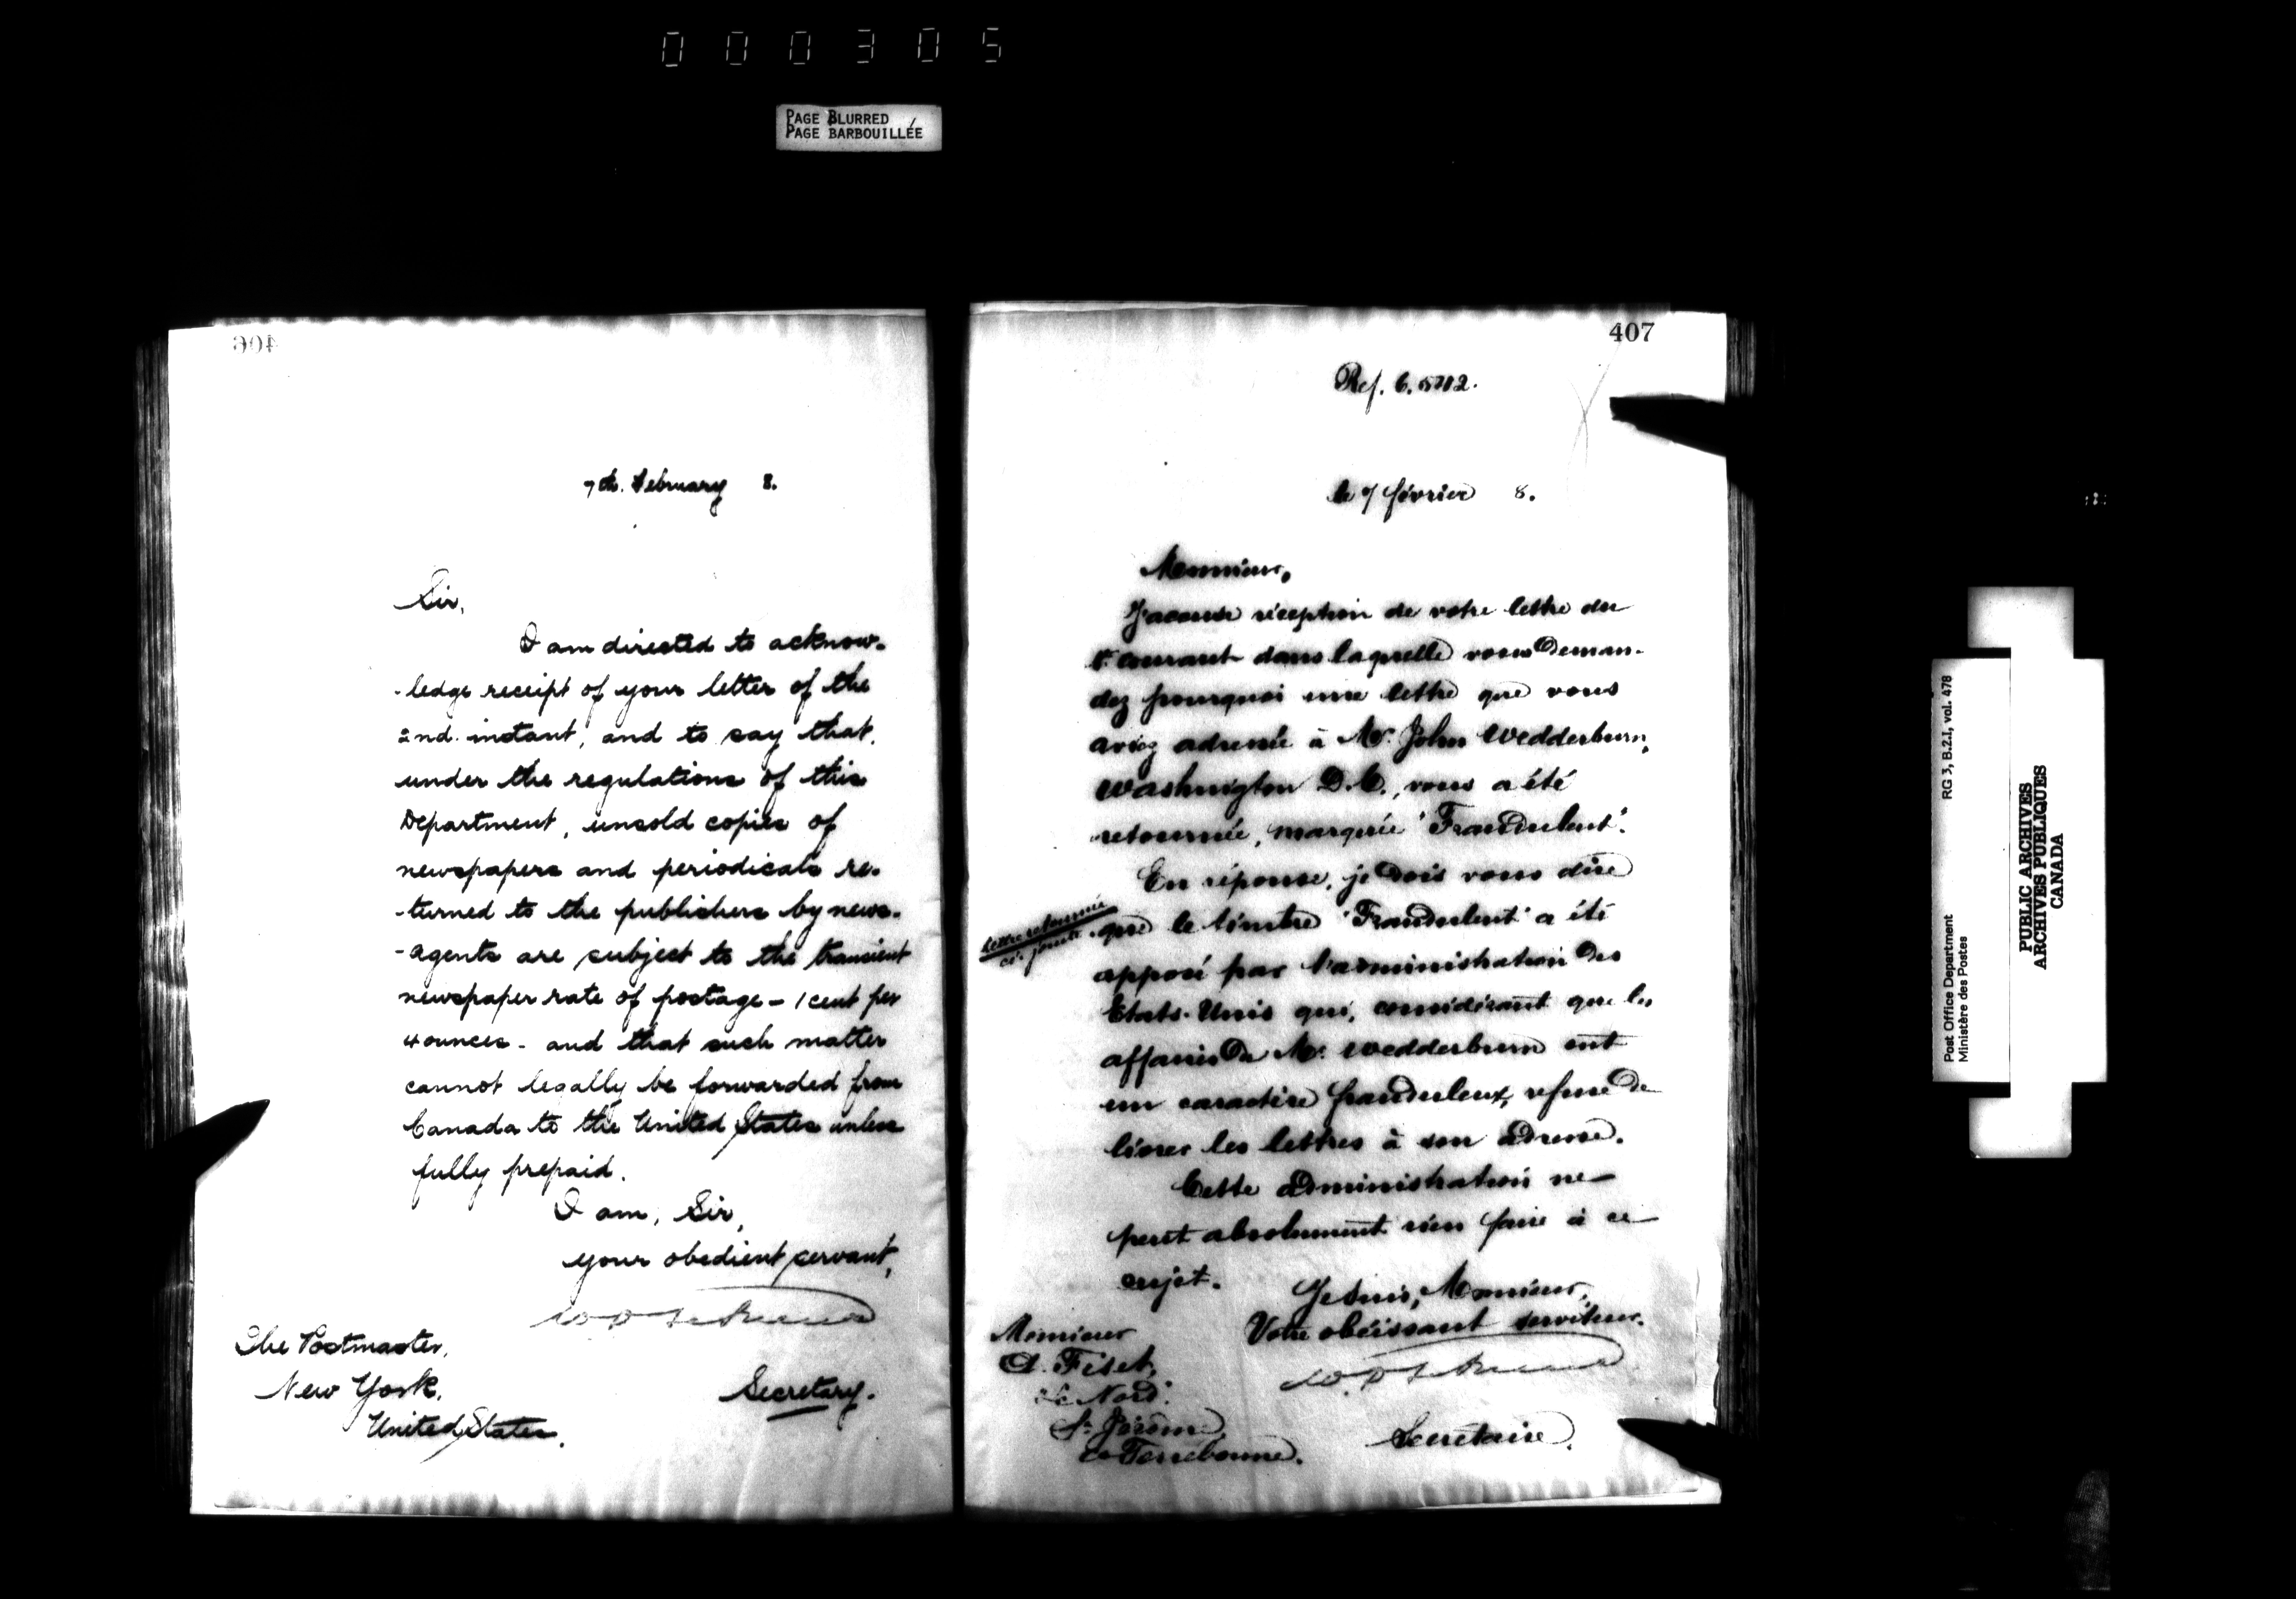 000305
PAGE BLURRED
PAGE BARBOUILLÉE
406
7th. February 8.
Sir,
I am directed to acknow-
-ledge receipt of your letter of the
2nd. instant, and to say that,
under the regulations of this
Department, unsold copies of
newspapers and periodicals re-
-turned to the publishers by news-
-agents are subject to the transient
newspaper rate of postage - 1 cent per
4 ounces - and that such matter
cannot legally be forwarded from
Canada to the United States unless
fully prepaid.
I am, Sir,
your obedient servant,
Secretary.
The Postmaster,
New York,
United States.
407
Ref. 6.
le 7 février 8.
Monsieur,
J'accuse réception de votre lettre du
courant dans laquelle vous deman-
dez pourquoi une lettre que vous
aviez adressée à Mr. John Wedderburn,
Washington D.C., vous a été
retournée, marquée 'Fraudulent'.
En réponse, je dois vous dire
que le timbre 'Fraudulent' a été
apposé par l'administration des
Etats-Unis qui, considérant que les
affaires de Mr. Wedderburn ont
un caractère frauduleux, refuse de
livrer les lettres à son adresse.
Cette administration ne
peut absolument rien faire à ce
sujet.
Je suis, Monsieur,
Votre obéissant serviteur.
Secrétaire.
Lettre retournée
ci-jointe.
Monsieur
A. Fiset,
"Le Nord".
St. Jérôme
Co Terrebonne.
Post Office Department
Ministère des Postes
RG 3, B.2.I, vol. 478
PUBLIC ARCHIVES
ARCHIVES PUBLIQUES
CANADA